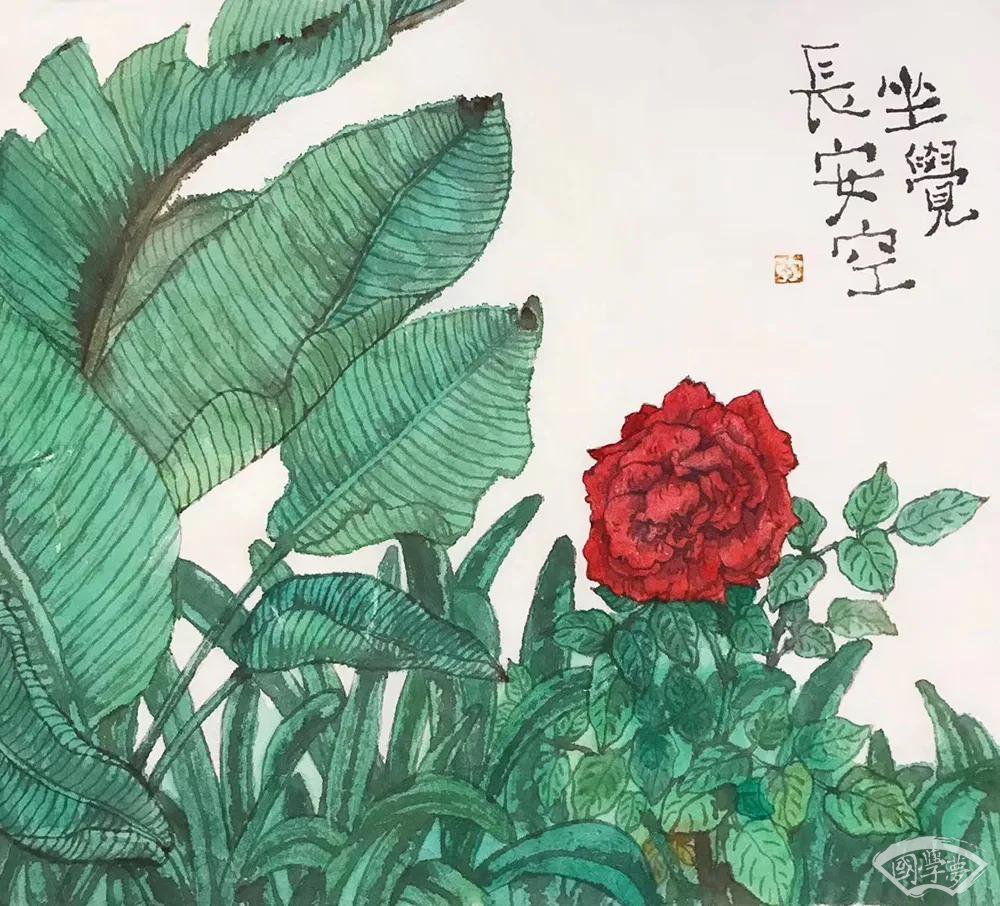 坐覺
長安空
國學夢